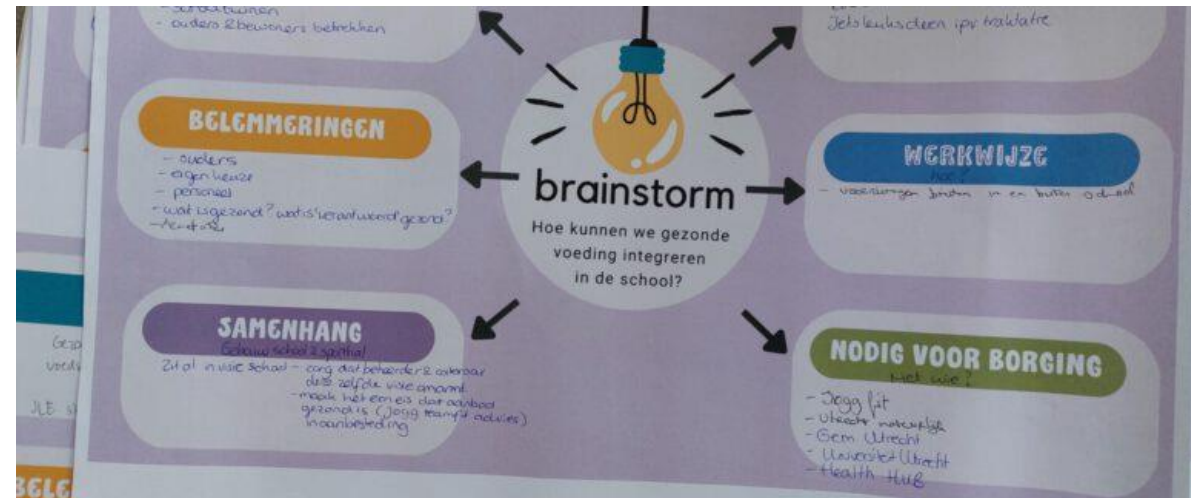 - ouders & bewoners betrekken
Iets leuks doen ipv traktatie
BELEMMERINGEN
- ouders
- eigen keuze
- personeel
- wat is gezond? wat is 'verantwoord' gezond?
brainstorm
Hoe kunnen we gezonde
voeding integreren
in de school?
WERKWIJZE
hoe?
- in en buiten school
SAMENHANG
Gebouw school & sporthal
Zit al in visie school - zorg dat beheerder &
deze zelfde visie
- maak het een eis dat aanbod
gezond is (Jogg teamfit advies)
in aanbesteding
NODIG VOOR BORGING
Met wie?
- Jogg fit
- Utrecht natuurlijk
- Gem Utrecht
- Universiteit Utrecht
- Health HUB
Gezo
voedi
JLE
BELE